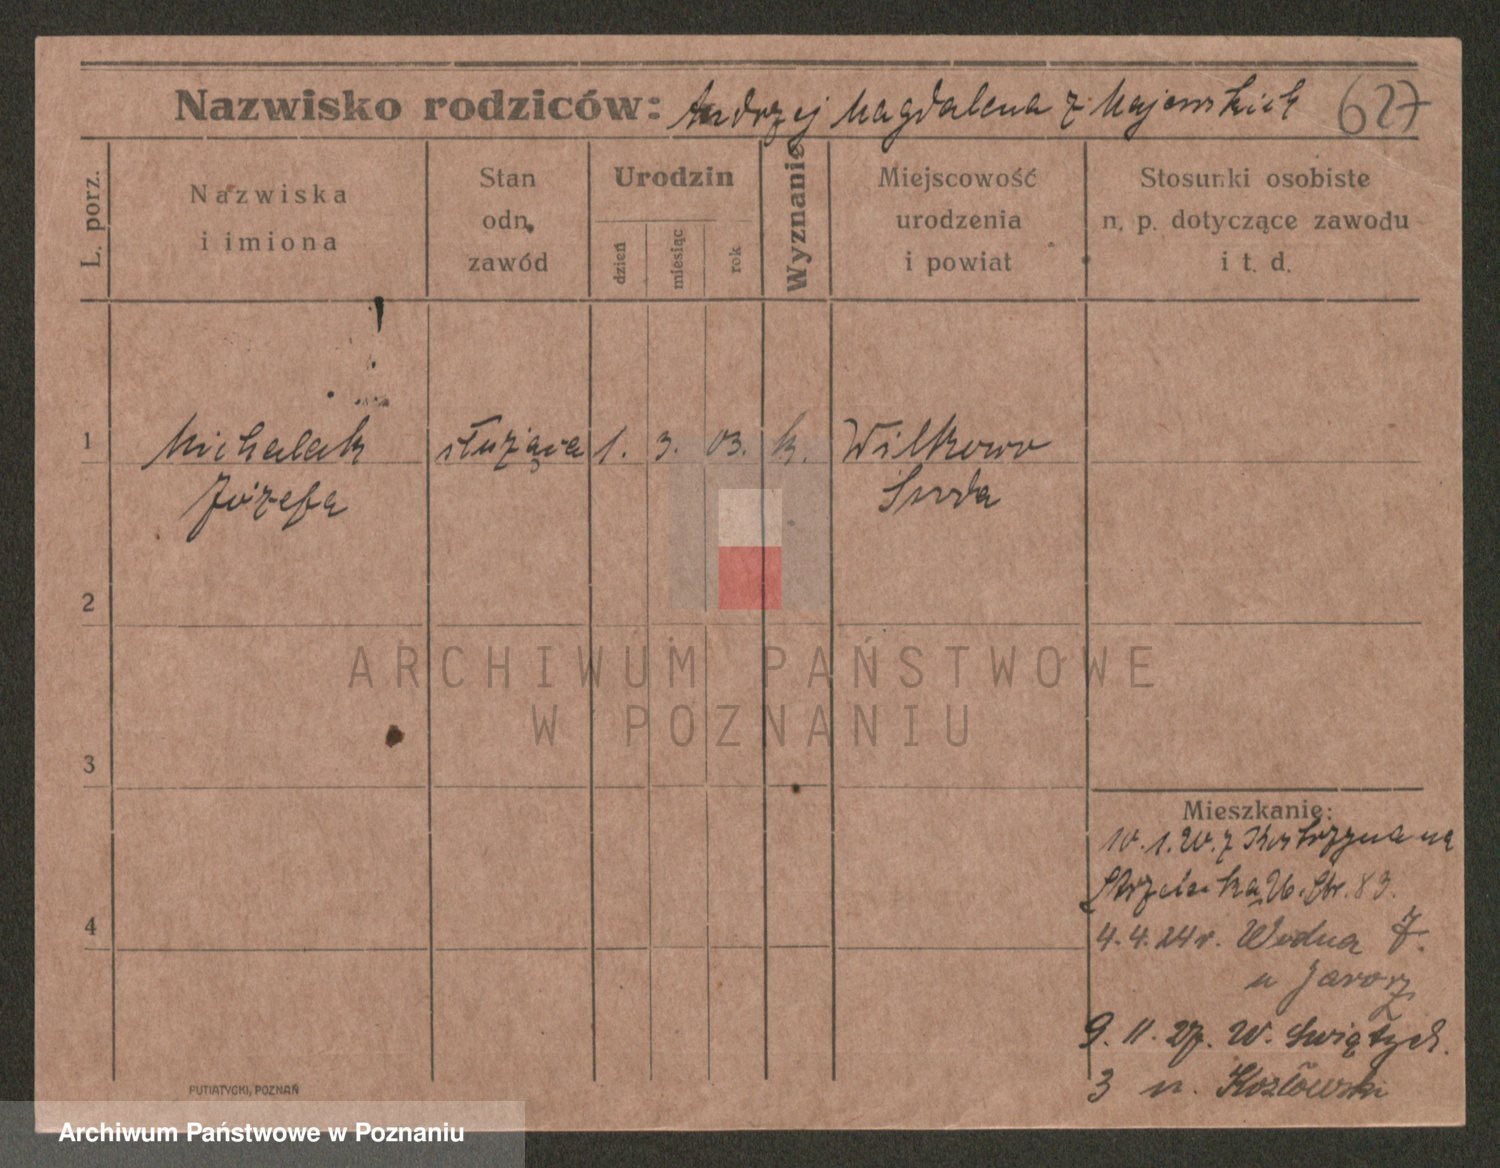 Nazwisko rodziców: Andrzej Magdalena z Majewskich 627
L. porz.
Nazwiska
i imiona
Stan
odn.
zawód
Urodzin
dzień
miesiąc
rok
Wyznanie
Miejscowość
urodzenia
i powiat
Stosunki osobiste
n. p. dotyczące zawodu
i t. d.
1 Michalak służąca 1. 3. 03. k. Wilkowo
Józefa Środa
2
ARCHIWUM PAŃSTWOWE
W POZNANIU
3
Mieszkanie:
10.1.20. z Kostrzyna na
Strzelecka 26. Str. 83.
4
4.4.24r. Wodna 7.
u Jarosz
9. 11. 27. W. Świętych.
3 u. Kozłowski
PUTIATYCKI, POZNAŃ
Archiwum Państwowe w Poznaniu